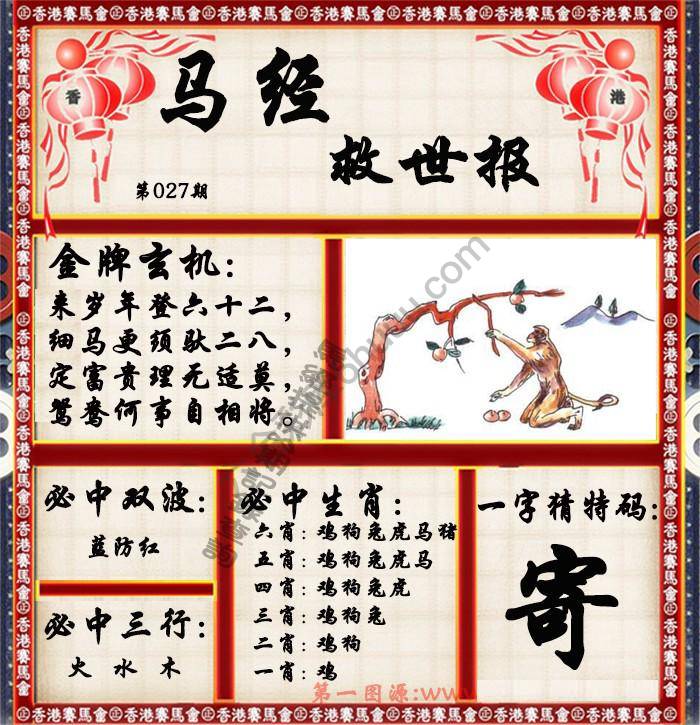 香港賽馬會
香
港
马经
救世报
第027期
金牌玄机:
来岁年登六十二,
细马更须驮二八,
定富贵理无适莫,
鸳鸯何事自相将。
必中双波:
蓝防红
必中三行:
火 水 木
必中生肖:
六肖: 鸡狗兔虎马猪
五肖: 鸡狗兔虎马
四肖: 鸡狗兔虎
三肖: 鸡狗兔
二肖: 鸡狗
一肖: 鸡
一字猜特码:
寄
第一图源:www